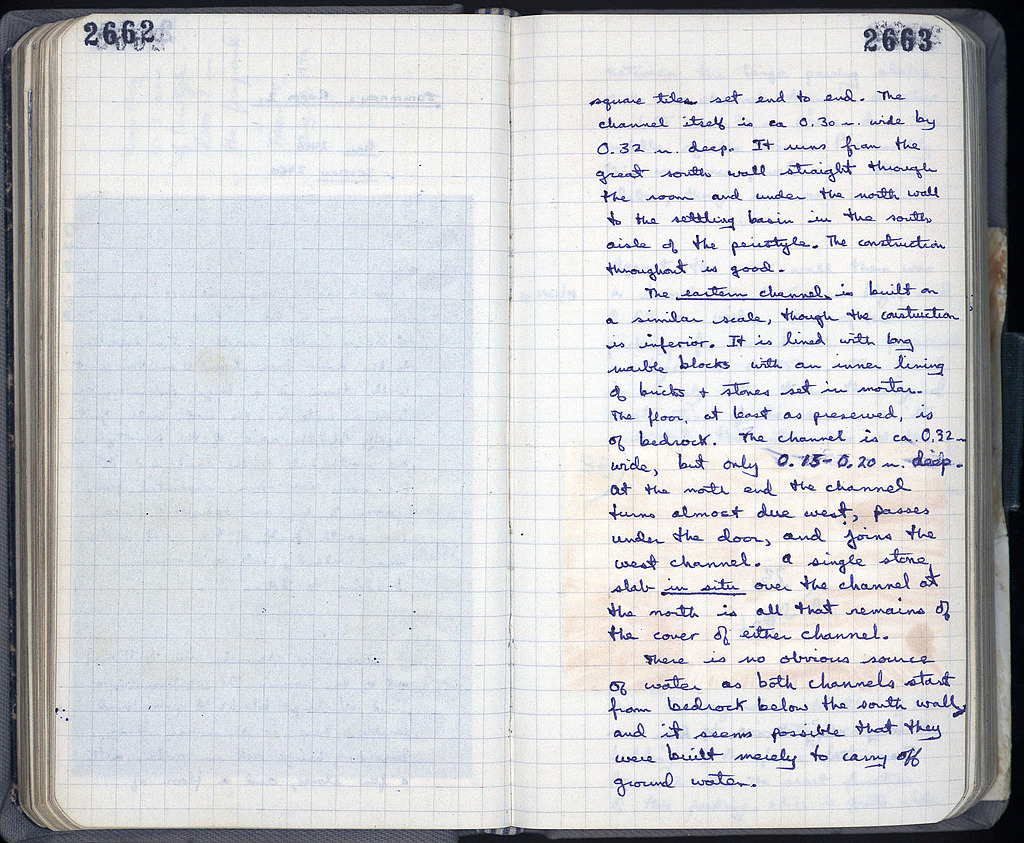 2662
2663
square tiles set end to end. The
channel itself is ca 0.30 m. wide by
0.32 m. deep. It runs from the
great south wall straight through
the room and under the north wall
to the settling basin in the south
aisle of the peristyle. The construction
throughout is good.
The eastern channel is built on
a similar scale, though the construction
is inferior. It is lined with long
marble blocks with an inner lining
of bricks + stones set in mortar.
The floor, at least as preserved, is
of bedrock. The channel is ca. 0.32 m
wide, but only 0.15-0.20 m. deep.
At the north end the channel
turns almost due west, passes
under the door, and joins the
west channel. A single stone
slab in situ over the channel at
the north is all that remains of
the cover of either channel.
There is no obvious source
of water as both channels start
from bedrock below the south wall,
and it seems possible that they
were built merely to carry off
ground water.